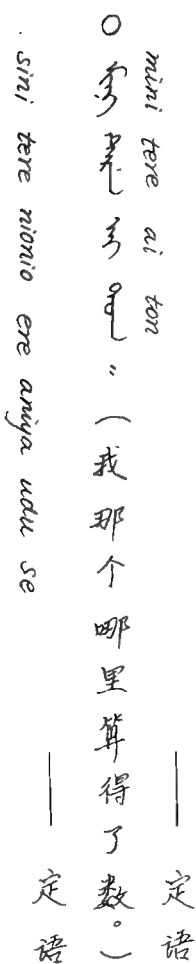 mini tere ai ton —— 定语
○ ᠮᡳᠨᡳ ᡨᡝᡵᡝ ᠠᡳ ᡨᠣᠨ ᠉ (我那个哪里算得了数。)
. sini tere nionio ere aniya udu se —— 定语